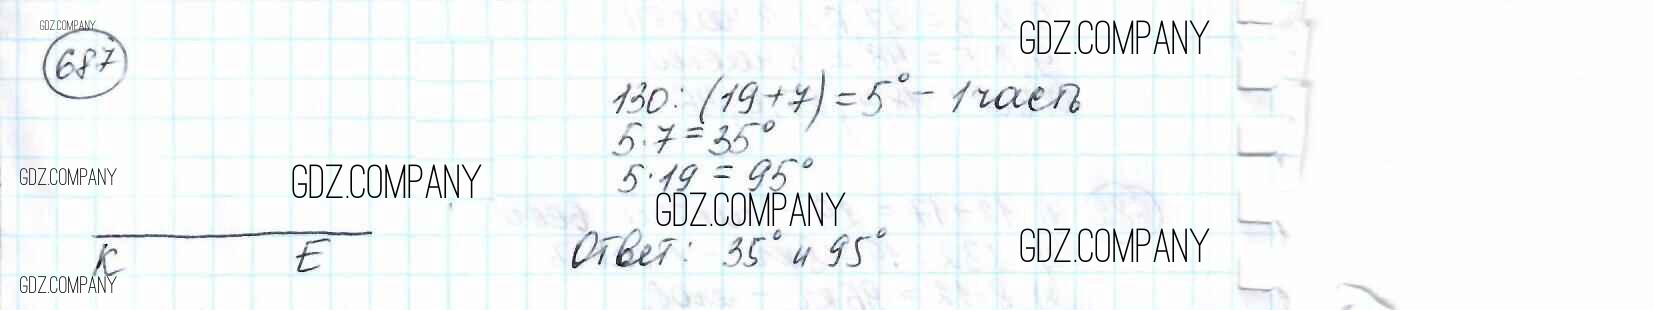 GDZ.COMPANY
687
GDZ.COMPANY
130 : (19+7) = 5° - 1 часть
5·7 = 35°
5·19 = 95°
GDZ.COMPANY
GDZ.COMPANY
GDZ.COMPANY
K E
Ответ: 35° и 95°
GDZ.COMPANY
GDZ.COMPANY